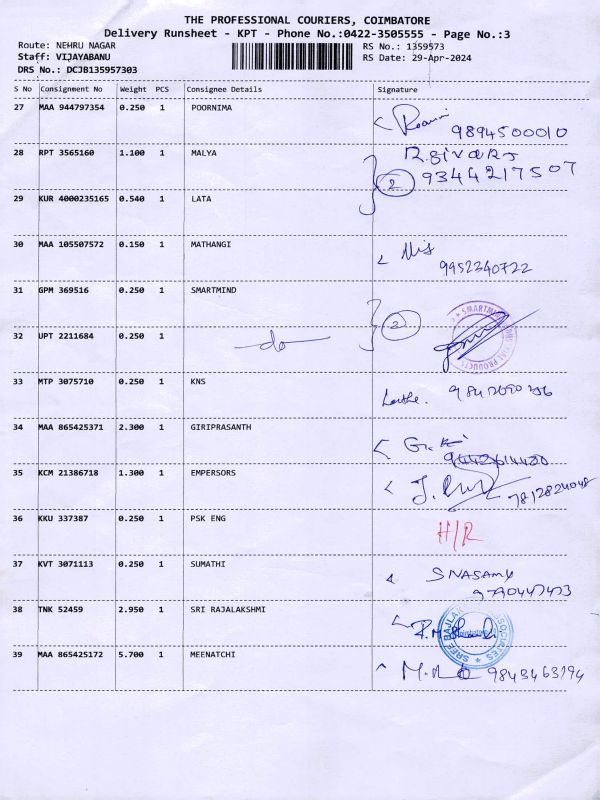 THE PROFESSIONAL COURIERS, COIMBATORE
Delivery Runsheet - KPT - Phone No.:0422-3505555 - Page No.:3
Route: NEHRU NAGAR
RS No.: 1359573
Staff: VIJAYABANU
RS Date: 29-Apr-2024
DRS No.: DCJB135957303
S No Consignment No Weight PCS Consignee Details Signature
27 MAA 944797354 0.250 1 POORNIMA
9894500010
28 RPT 3565160 1.100 1 MALYA
9344217507
2
29 KUR 4000235165 0.540 1 LATA
30 MAA 105507572 0.150 1 MATHANGI
9952340722
31 GPM 369516 0.250 1 SMARTMIND
2
SMARTMI
32 UPT 2211684 0.250 1
do
33 MTP 3075710 0.250 1 KNS
34 MAA 865425371 2.300 1 GIRIPRASANTH
35 KCM 21386718 1.300 1 EMPERSORS
7812824048
36 KKU 337387 0.250 1 PSK ENG
H/R
37 KVT 3071113 0.250 1 SUMATHI
38 TNK 52459 2.950 1 SRI RAJALAKSHMI
39 MAA 865425172 5.700 1 MEENATCHI
9843463194